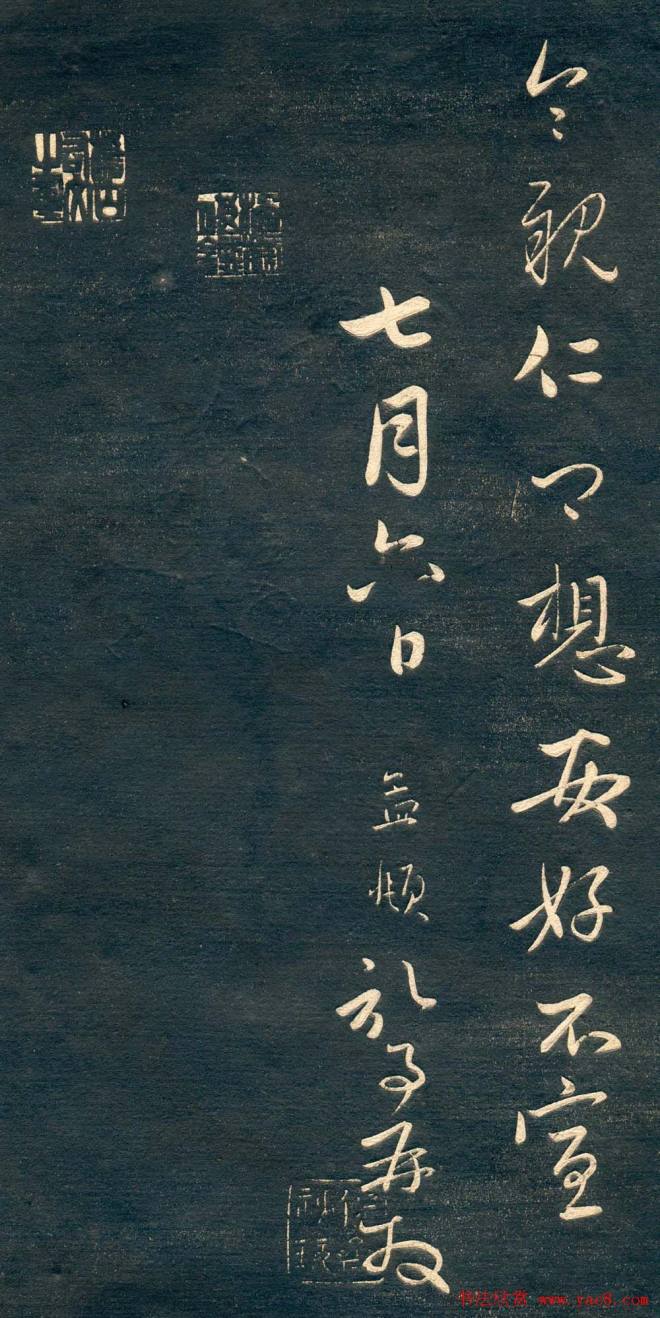 令親仁卿想安好不宣
七月六日 孟頫 再拜
书法欣赏 www.yac8.com